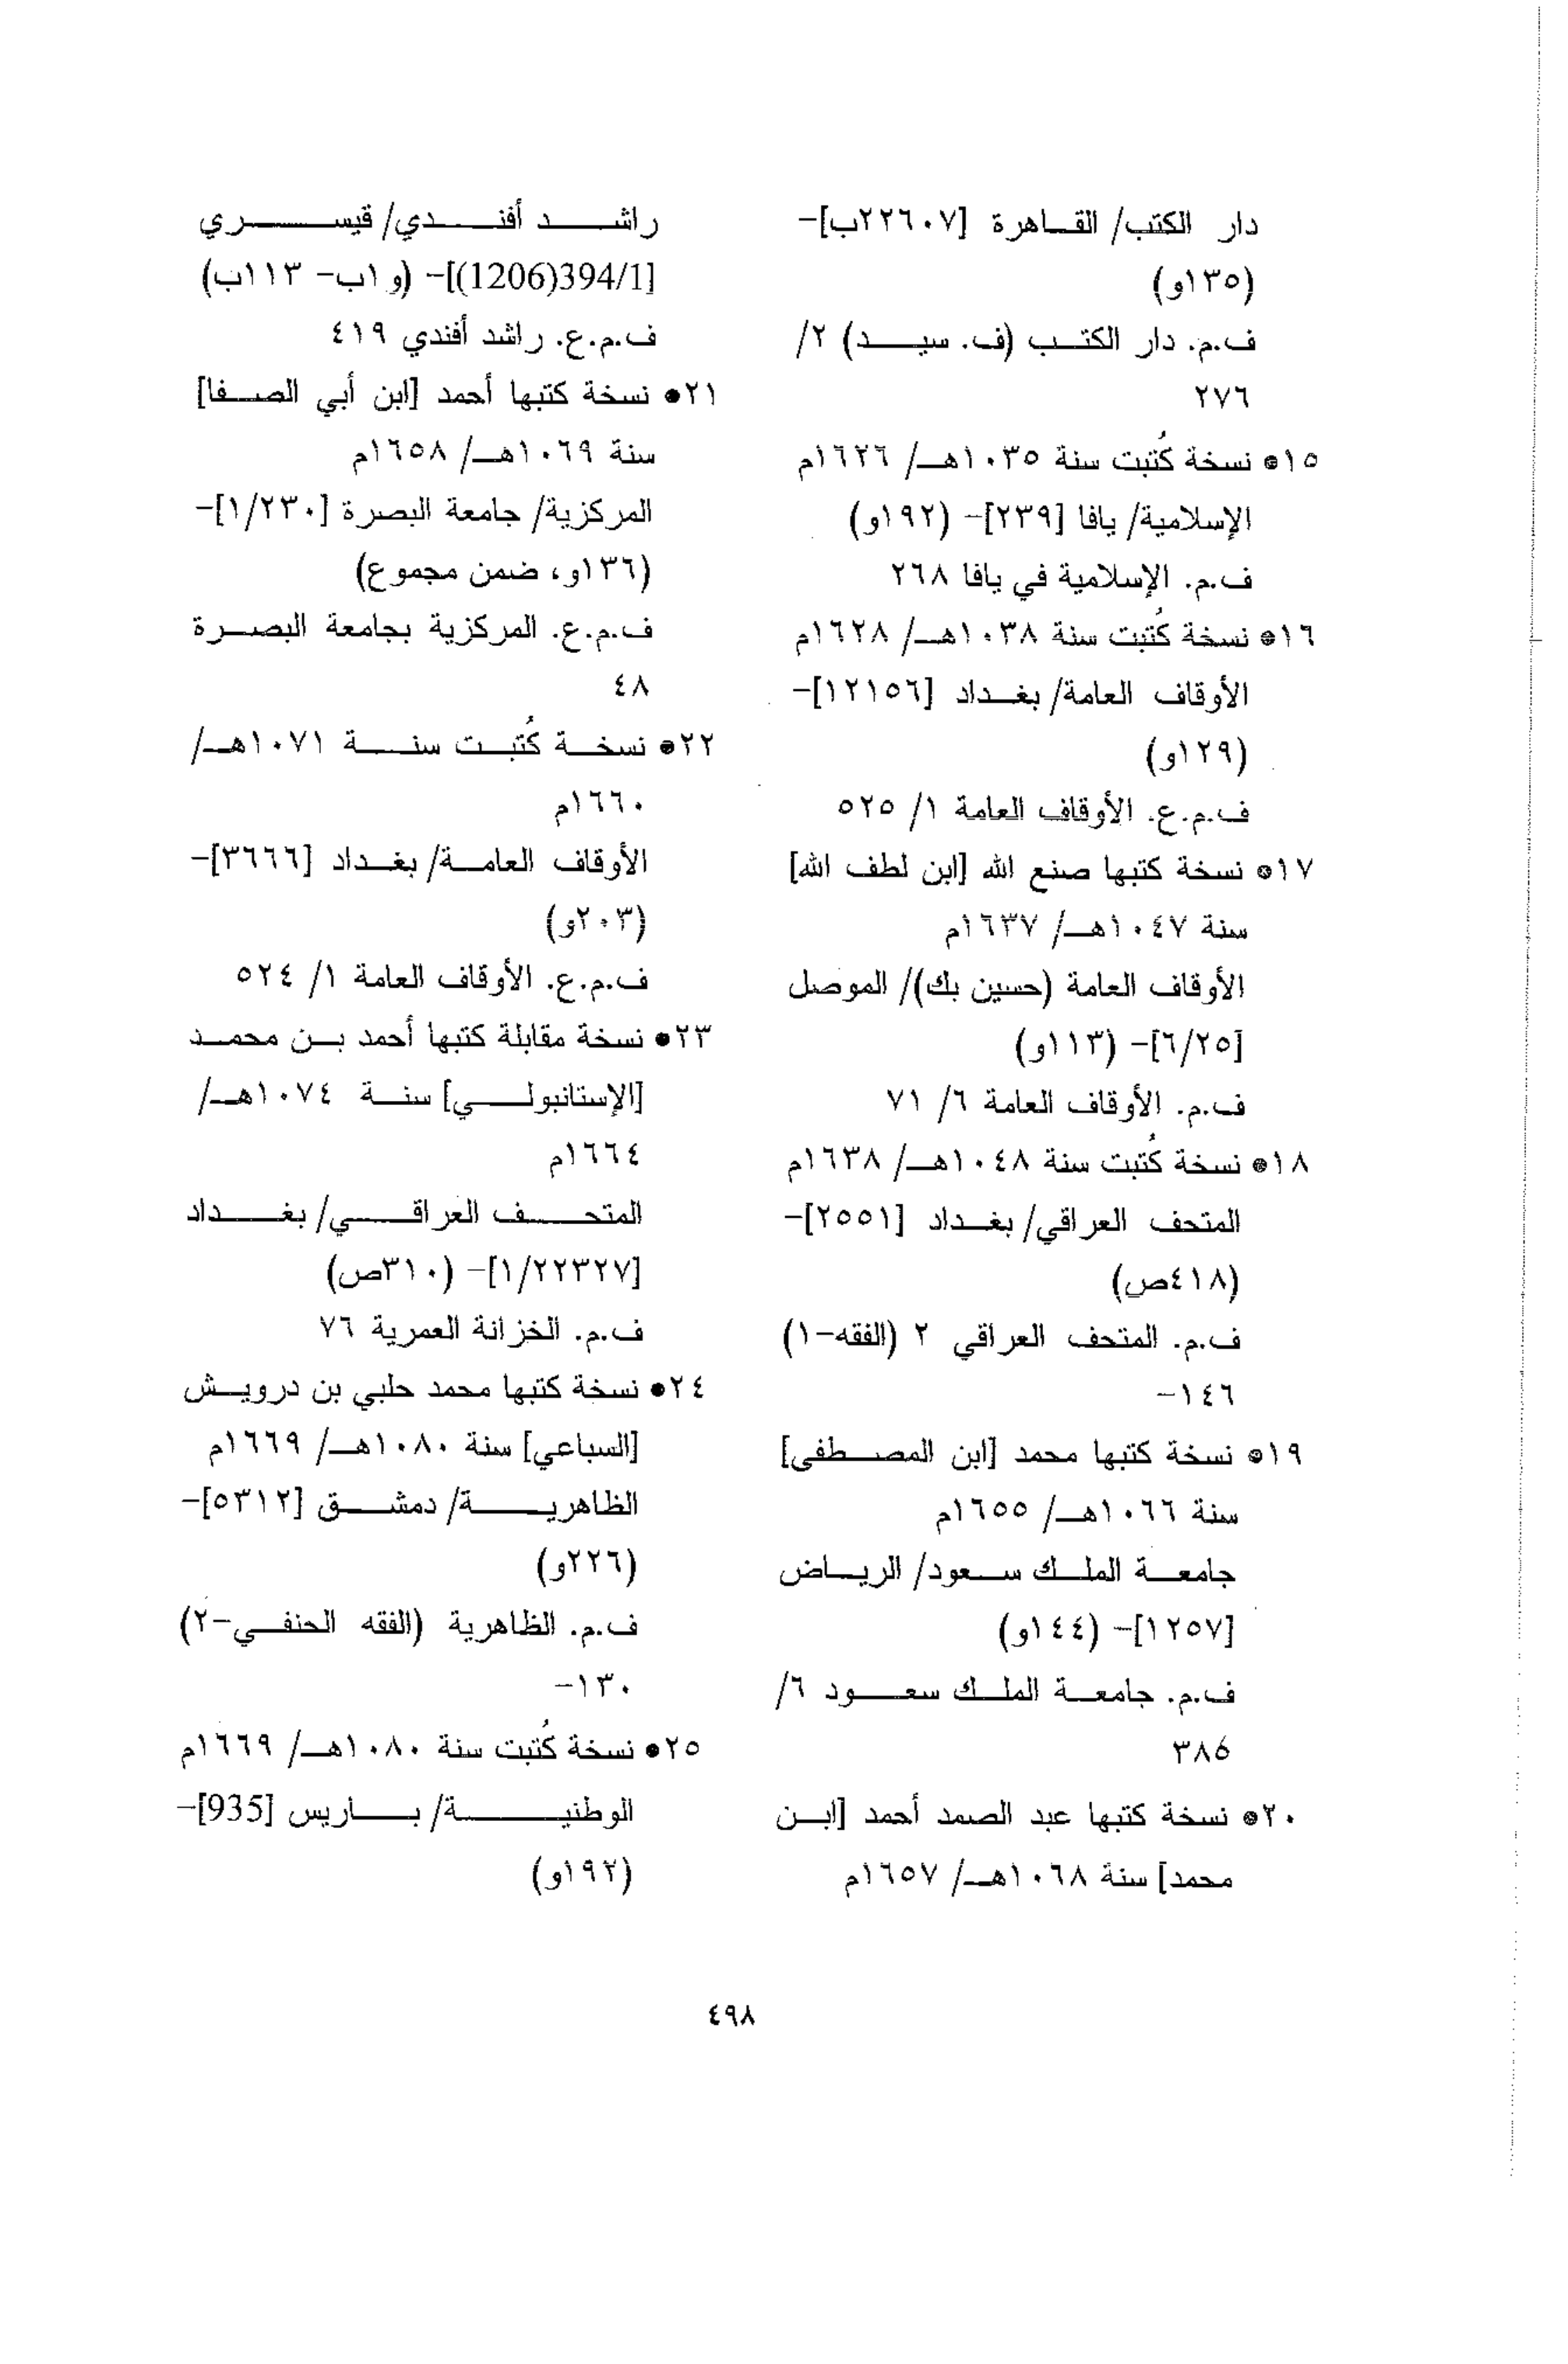 دار الكتب/ القاهرة [٢٢٦٠٧ب]-
(١٣٥و)
ف.م. دار الكتب (ف. سيد) ٢/
٢٧٦
١٥● نسخة كُتبت سنة ١٠٣٥هـ/ ١٦٢٦م
الإسلامية/ يافا [٢٣٩]- (١٩٢و)
ف.م. الإسلامية في يافا ٢٦٨
١٦● نسخة كُتبت سنة ١٠٣٨هـ/ ١٦٢٨م
الأوقاف العامة/ بغداد [١٢١٥٦]-
(١٢٩و)
ف.م.ع. الأوقاف العامة ١/ ٥٢٥
١٧● نسخة كتبها صنع الله [ابن لطف الله]
سنة ١٠٤٧هـ/ ١٦٣٧م
الأوقاف العامة (حسين بك)/ الموصل
[٦/٢٥]- (١١٣و)
ف.م. الأوقاف العامة ٦/ ٧١
١٨● نسخة كُتبت سنة ١٠٤٨هـ/ ١٦٣٨م
المتحف العراقي/ بغداد [٢٥٥١]-
(٤١٨ص)
ف.م. المتحف العراقي ٢ (الفقه-١)
١٤٦-
١٩● نسخة كتبها محمد [ابن المصطفى]
سنة ١٠٦٦هـ/ ١٦٥٥م
جامعة الملك سعود/ الرياض
[١٢٥٧]- (١٤٤و)
ف.م. جامعة الملك سعود ٦/
٣٨٤
٢٠● نسخة كتبها عبد الصمد أحمد [ابن
محمد] سنة ١٠٦٨هـ/ ١٦٥٧م
راشد أفندي/ قيسري
[394/1(1206)]- (و١ب- ١١٣ب)
ف.م.ع. راشد أفندي ٤١٩
٢١● نسخة كتبها أحمد [ابن أبي الصفا]
سنة ١٠٦٩هـ/ ١٦٥٨م
المركزية/ جامعة البصرة [١/٢٣٠]-
(١٣٦و، ضمن مجموع)
ف.م.ع. المركزية بجامعة البصرة
٤٨
٢٢● نسخة كُتبت سنة ١٠٧١هـ/
١٦٦٠م
الأوقاف العامة/ بغداد [٣٦٦٦]-
(٢٠٣و)
ف.م.ع. الأوقاف العامة ١/ ٥٢٤
٢٣● نسخة مقابلة كتبها أحمد بن محمد
[الإستانبولي] سنة ١٠٧٤هـ/
١٦٦٤م
المتحف العراقي/ بغداد
[١/٢٢٣٢٧]- (٣١٠ص)
ف.م. الخزانة العمرية ٧٦
٢٤● نسخة كتبها محمد حلبي بن درويش
[السباعي] سنة ١٠٨٠هـ/ ١٦٦٩م
الظاهرية/ دمشق [٥٣١٢]-
(٢٢٦و)
ف.م. الظاهرية (الفقه الحنفي-٢)
١٣٠-
٢٥● نسخة كُتبت سنة ١٠٨٠هـ/ ١٦٦٩م
الوطنية/ باريس [935]-
(١٩٢و)
٤٩٨